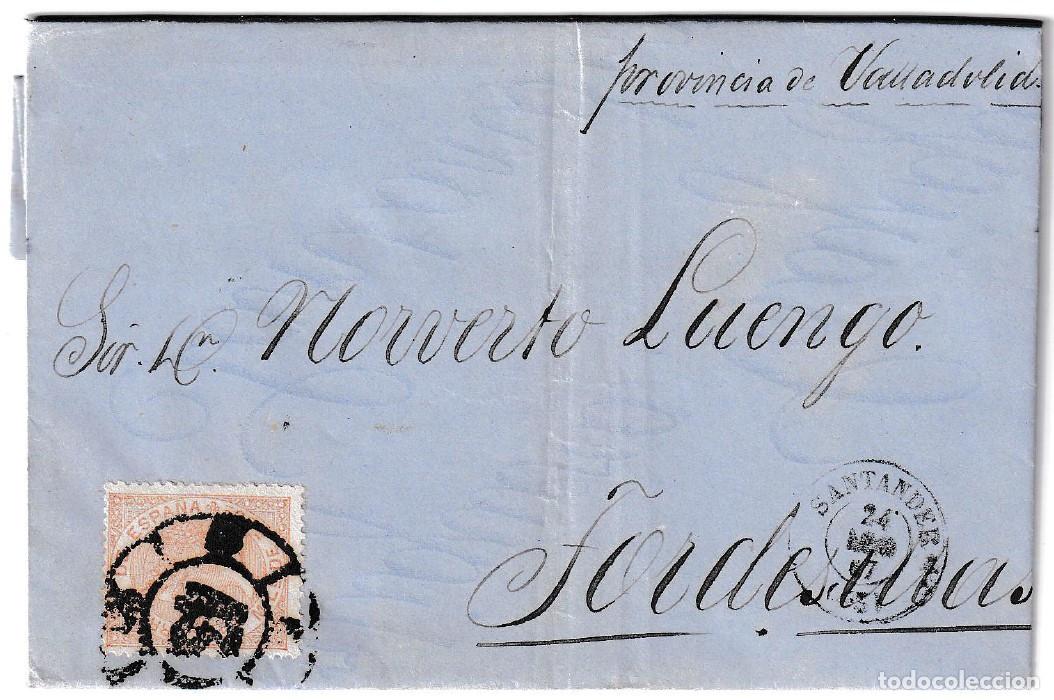 provincia de Valladolid
Sir. Dn. Norverto Luengo.
Tordesillas
ESPAÑA
SANTANDER
24
todocoleccion